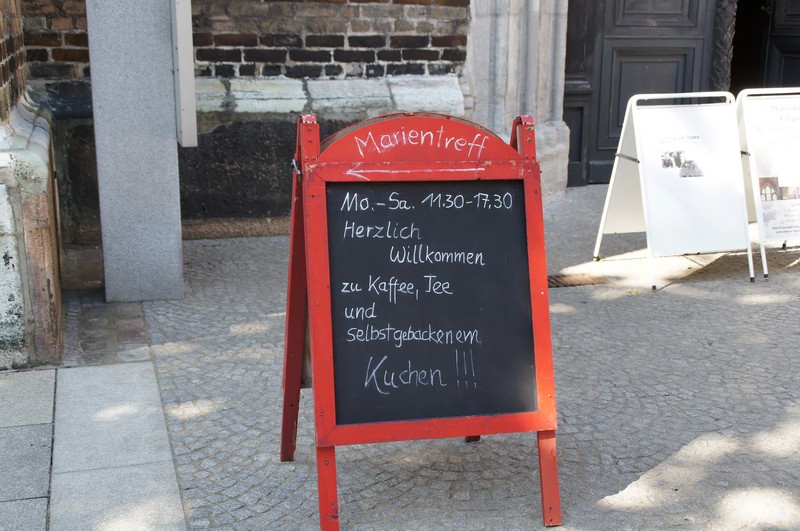 Marientreff
Mo.-Sa. 11.30-17.30
Herzlich
Willkommen
zu Kaffee, Tee
und
selbstgebackenem
Kuchen !!!